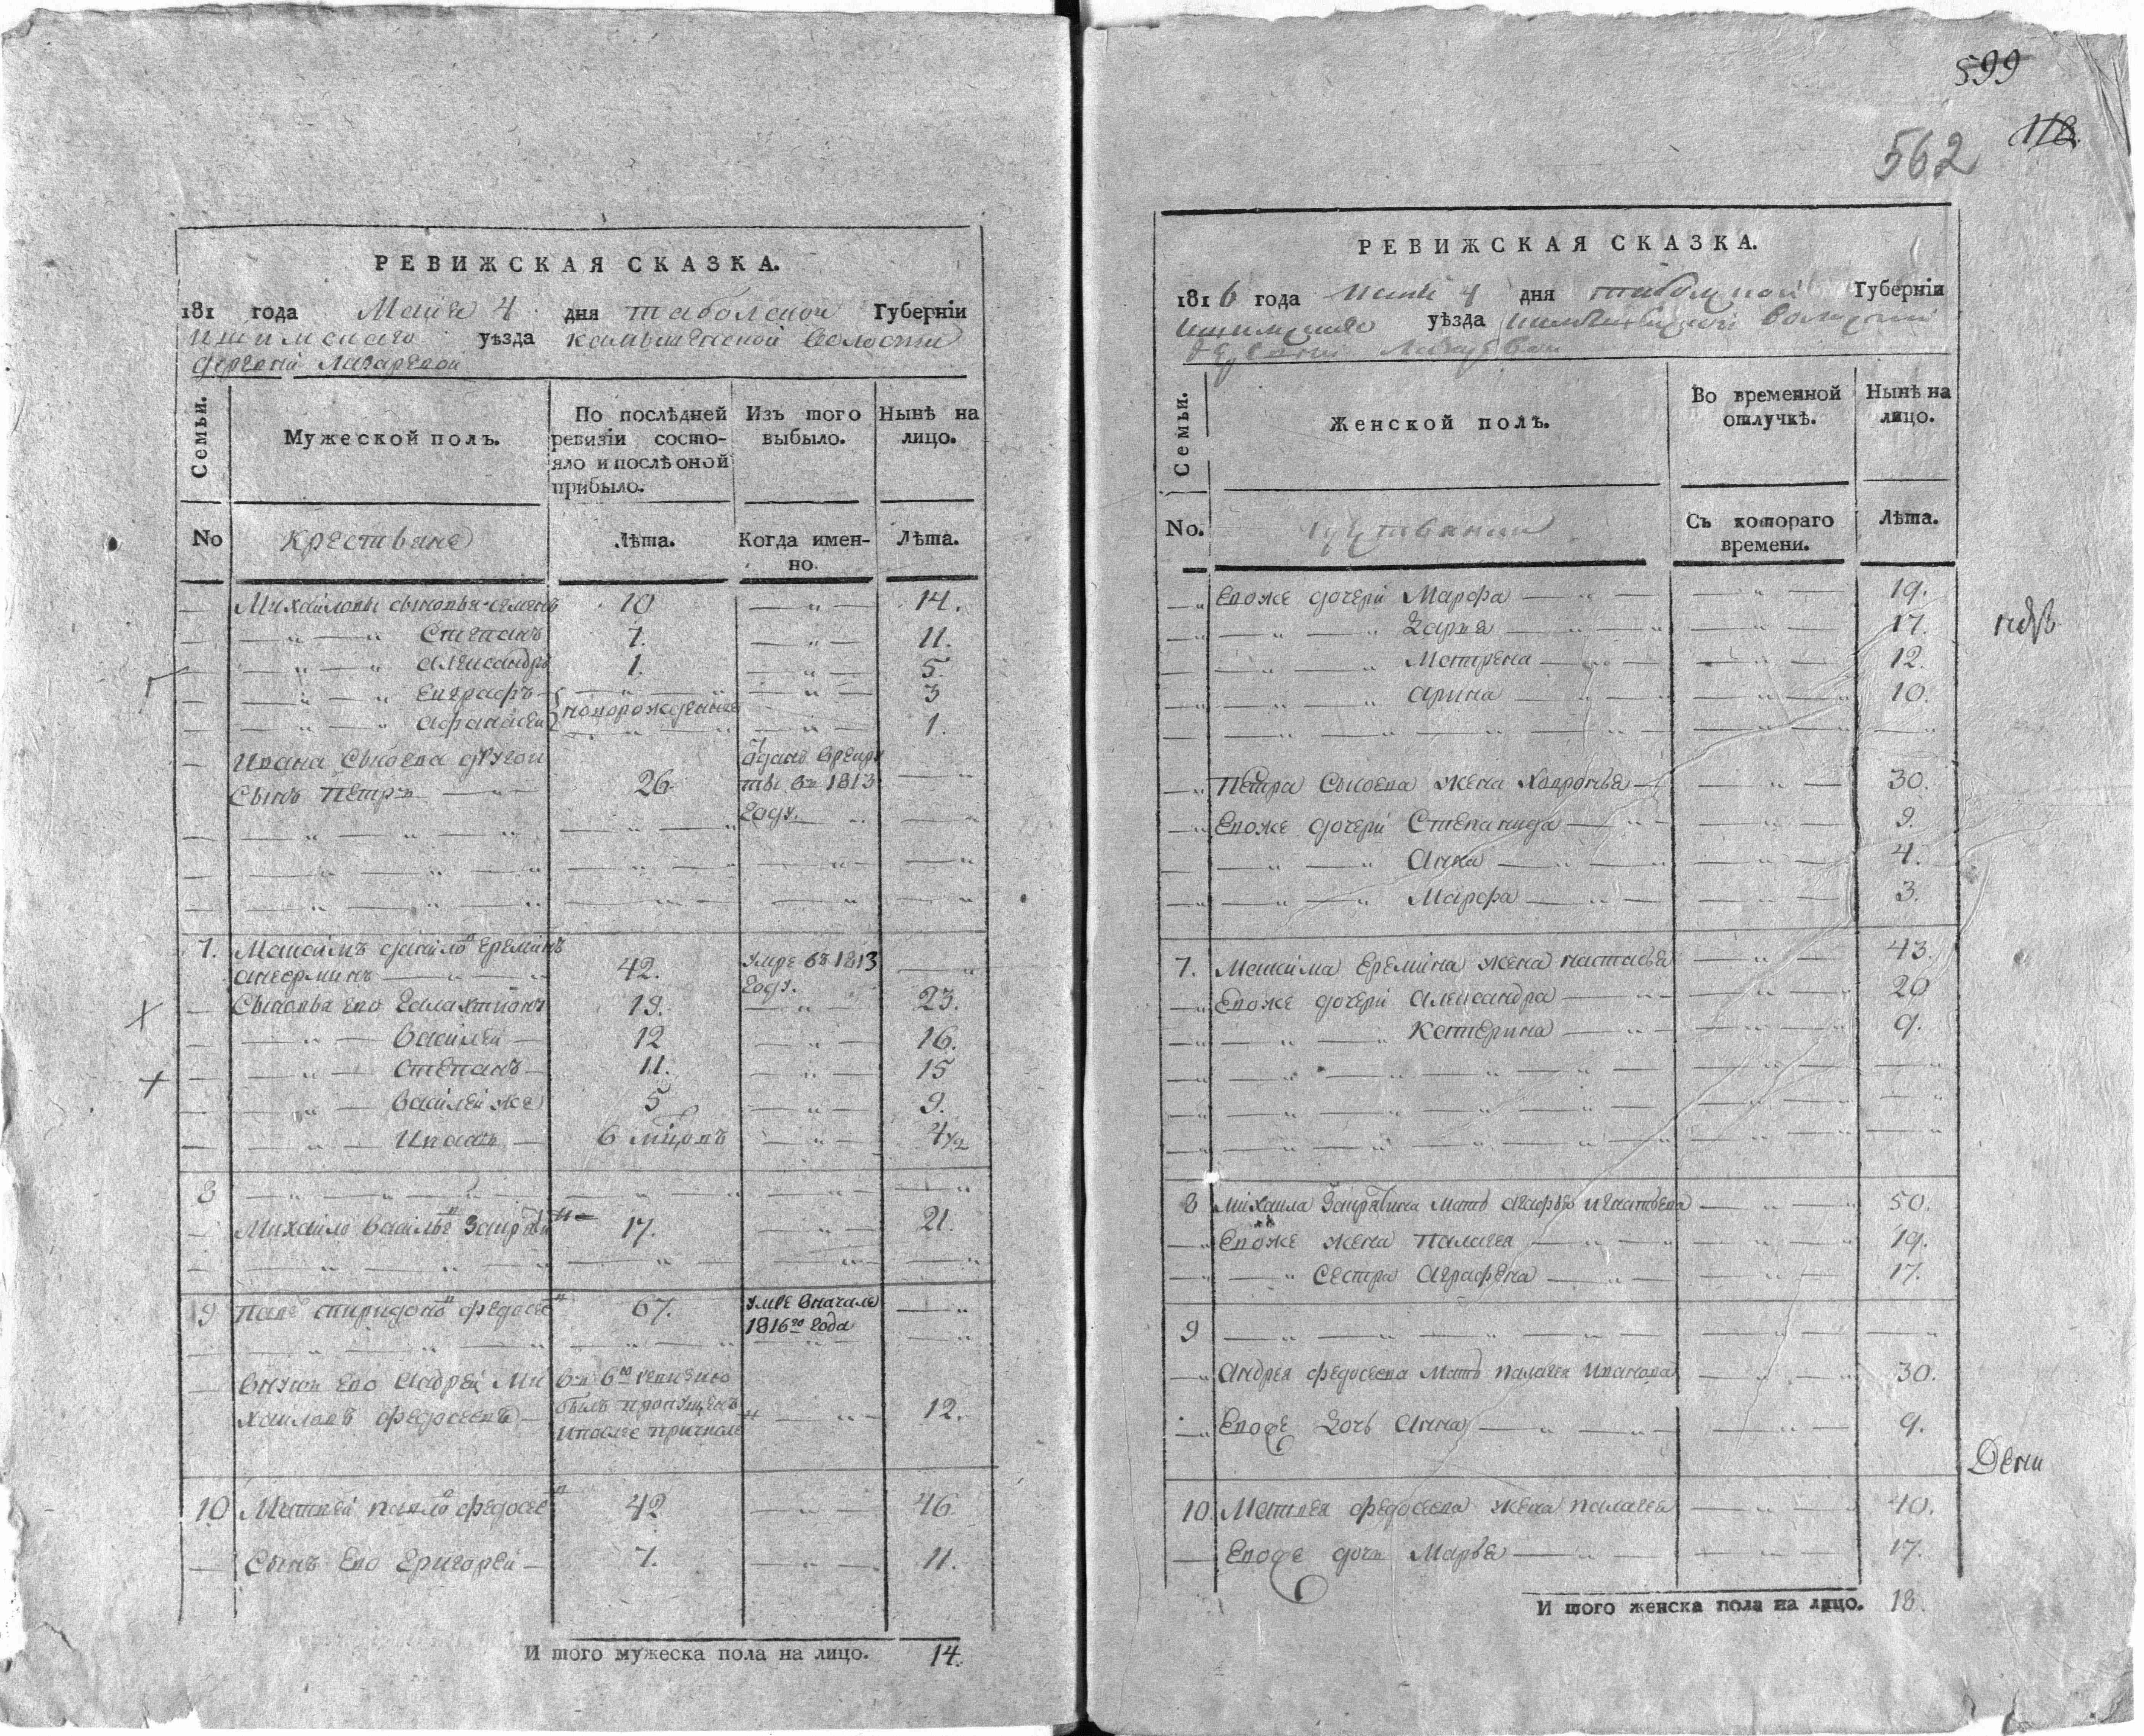 РЕВИЖСКАЯ СКАЗКА.
181 года Маiя 4 дня таболской Губернiи
Ишимскаго уѣзда камышевской волости
деревни Лазаревой
Семьи.
Мужеской полъ.
По послѣдней ревизiи состо-
яло и послѣ оной
прибыло.
Изъ того
выбыло.
Нынѣ на
лицо.
No
Крестьяне
Лѣта.
Когда имен-
но.
Лѣта.
Михайловы сыновья Семенъ 10 14.
Степанъ 7. 11.
Александръ 1. 5.
Евграфъ 3
новорожденные
Афанасей 1.
Ивана Сысоева другой
Сынъ Петръ 26 отданъ врекру
ты въ 1813
году.
7. Максимъ Ереминъ 42. умре въ 1813
году.
Сыновья ево Галахтионъ 19. 23.
Василей 12 16.
Степанъ 11. 15
Василей же 5 9.
Иванъ 6 мцовъ 4 1/2
8
Михайло Василье 17. 21.
9 Паве спиридо федосее 67. умре вначале
1816го года
Внукъ ево Андрей Ми
хайловъ федосеевъ
въ 6ю ревизию
былъ пропущенъ
12.
10 Матвей павло федосее 42 46
Сынъ Ево Григорей 7. 11.
И того мужеска пола на лицо. 14.
599
118
562
РЕВИЖСКАЯ СКАЗКА.
1816 года маiя 4 дня таболской Губернiи
Ишимскаго уѣзда волости
деревни Лазаревой
Семьи.
Женской полъ.
Во временной
отлучкѣ.
Нынѣ на
лицо.
No.
Съ котораго
времени.
Лѣта.
Евоже дочери Марфа 19.
Дарья 17.
Матрена 12.
Арина 10.
Петра Сысоева жена Хавронья 30.
Евоже дочери Степанида 9.
Анна 4.
Марфа 3.
7. Максима Еремина жена настасья 43.
Евоже дочери Александра 20
Катерина 9.
8 Михаила мать агафья игнатьева 50.
Евоже жена Палагея 19.
Сестра Аграфена 17.
9
Андрея федосеева мать палагея Иванова 30.
Еводе Дочь Анна 9.
10 Матвея федосеева жена палагея 40.
Еводе дочь Марья 17.
И того женска пола на лицо. 18.